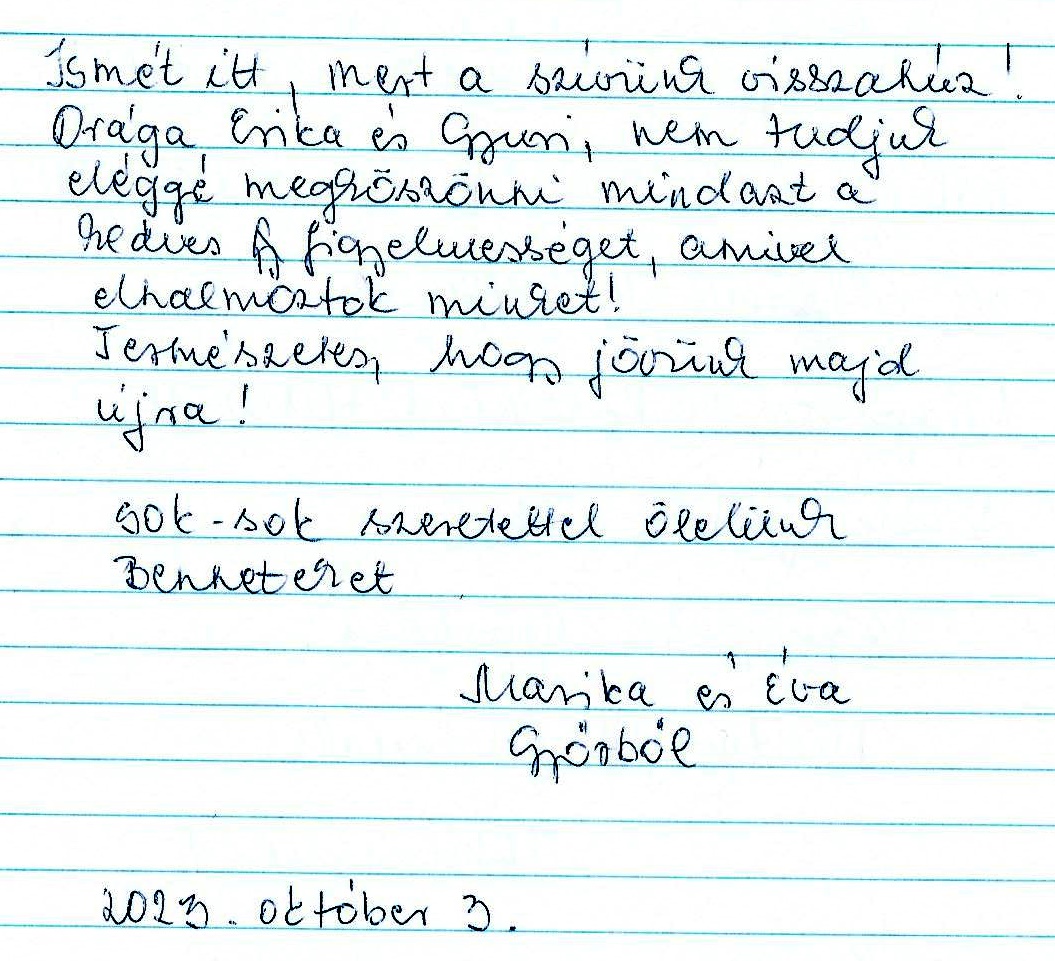 Ismét itt, mert a szívünk visszahúz!
Drága Erika és Gyuri, nem tudjuk
eléggé megköszönni mindazt a
kedves figyelmességet, amivel
elhalmoztok minket!
Természetes, hogy jövünk majd
újra!
Sok-sok szeretettel ölelünk
Benneteket
Marika és Éva
Győrből
2023. október 3.